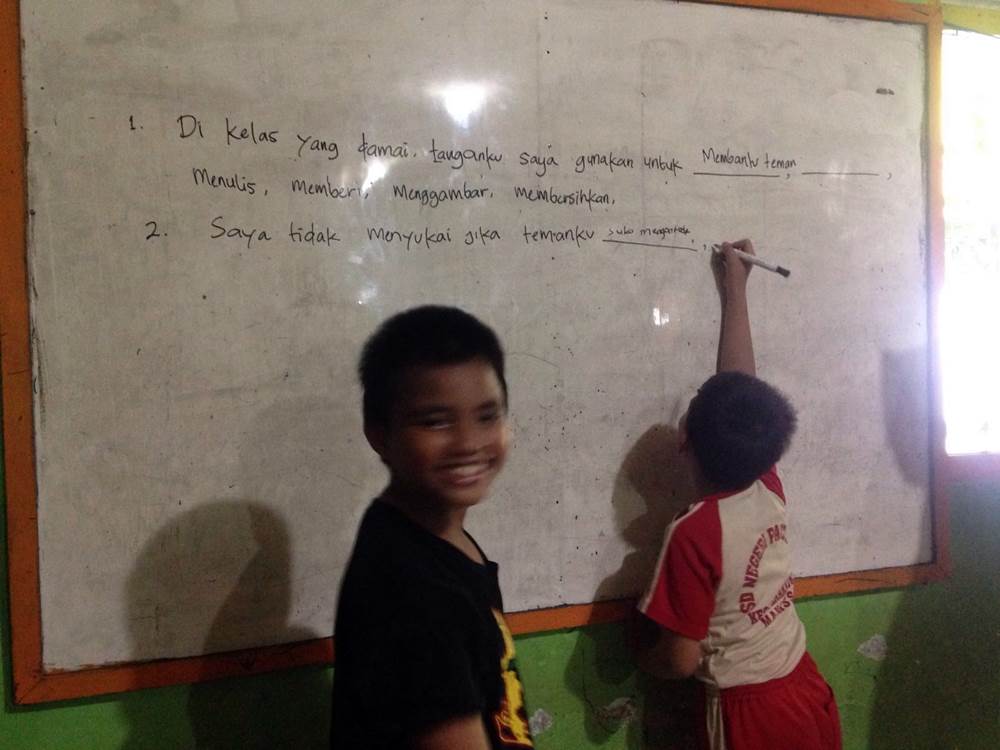 1. Di kelas yang damai, tanganku saya gunakan untuk Membantu teman, ______,
Menulis, memberi, menggambar, membersihkan,
2. Saya tidak menyukai jika temanku suka , ,
SD NEGERI